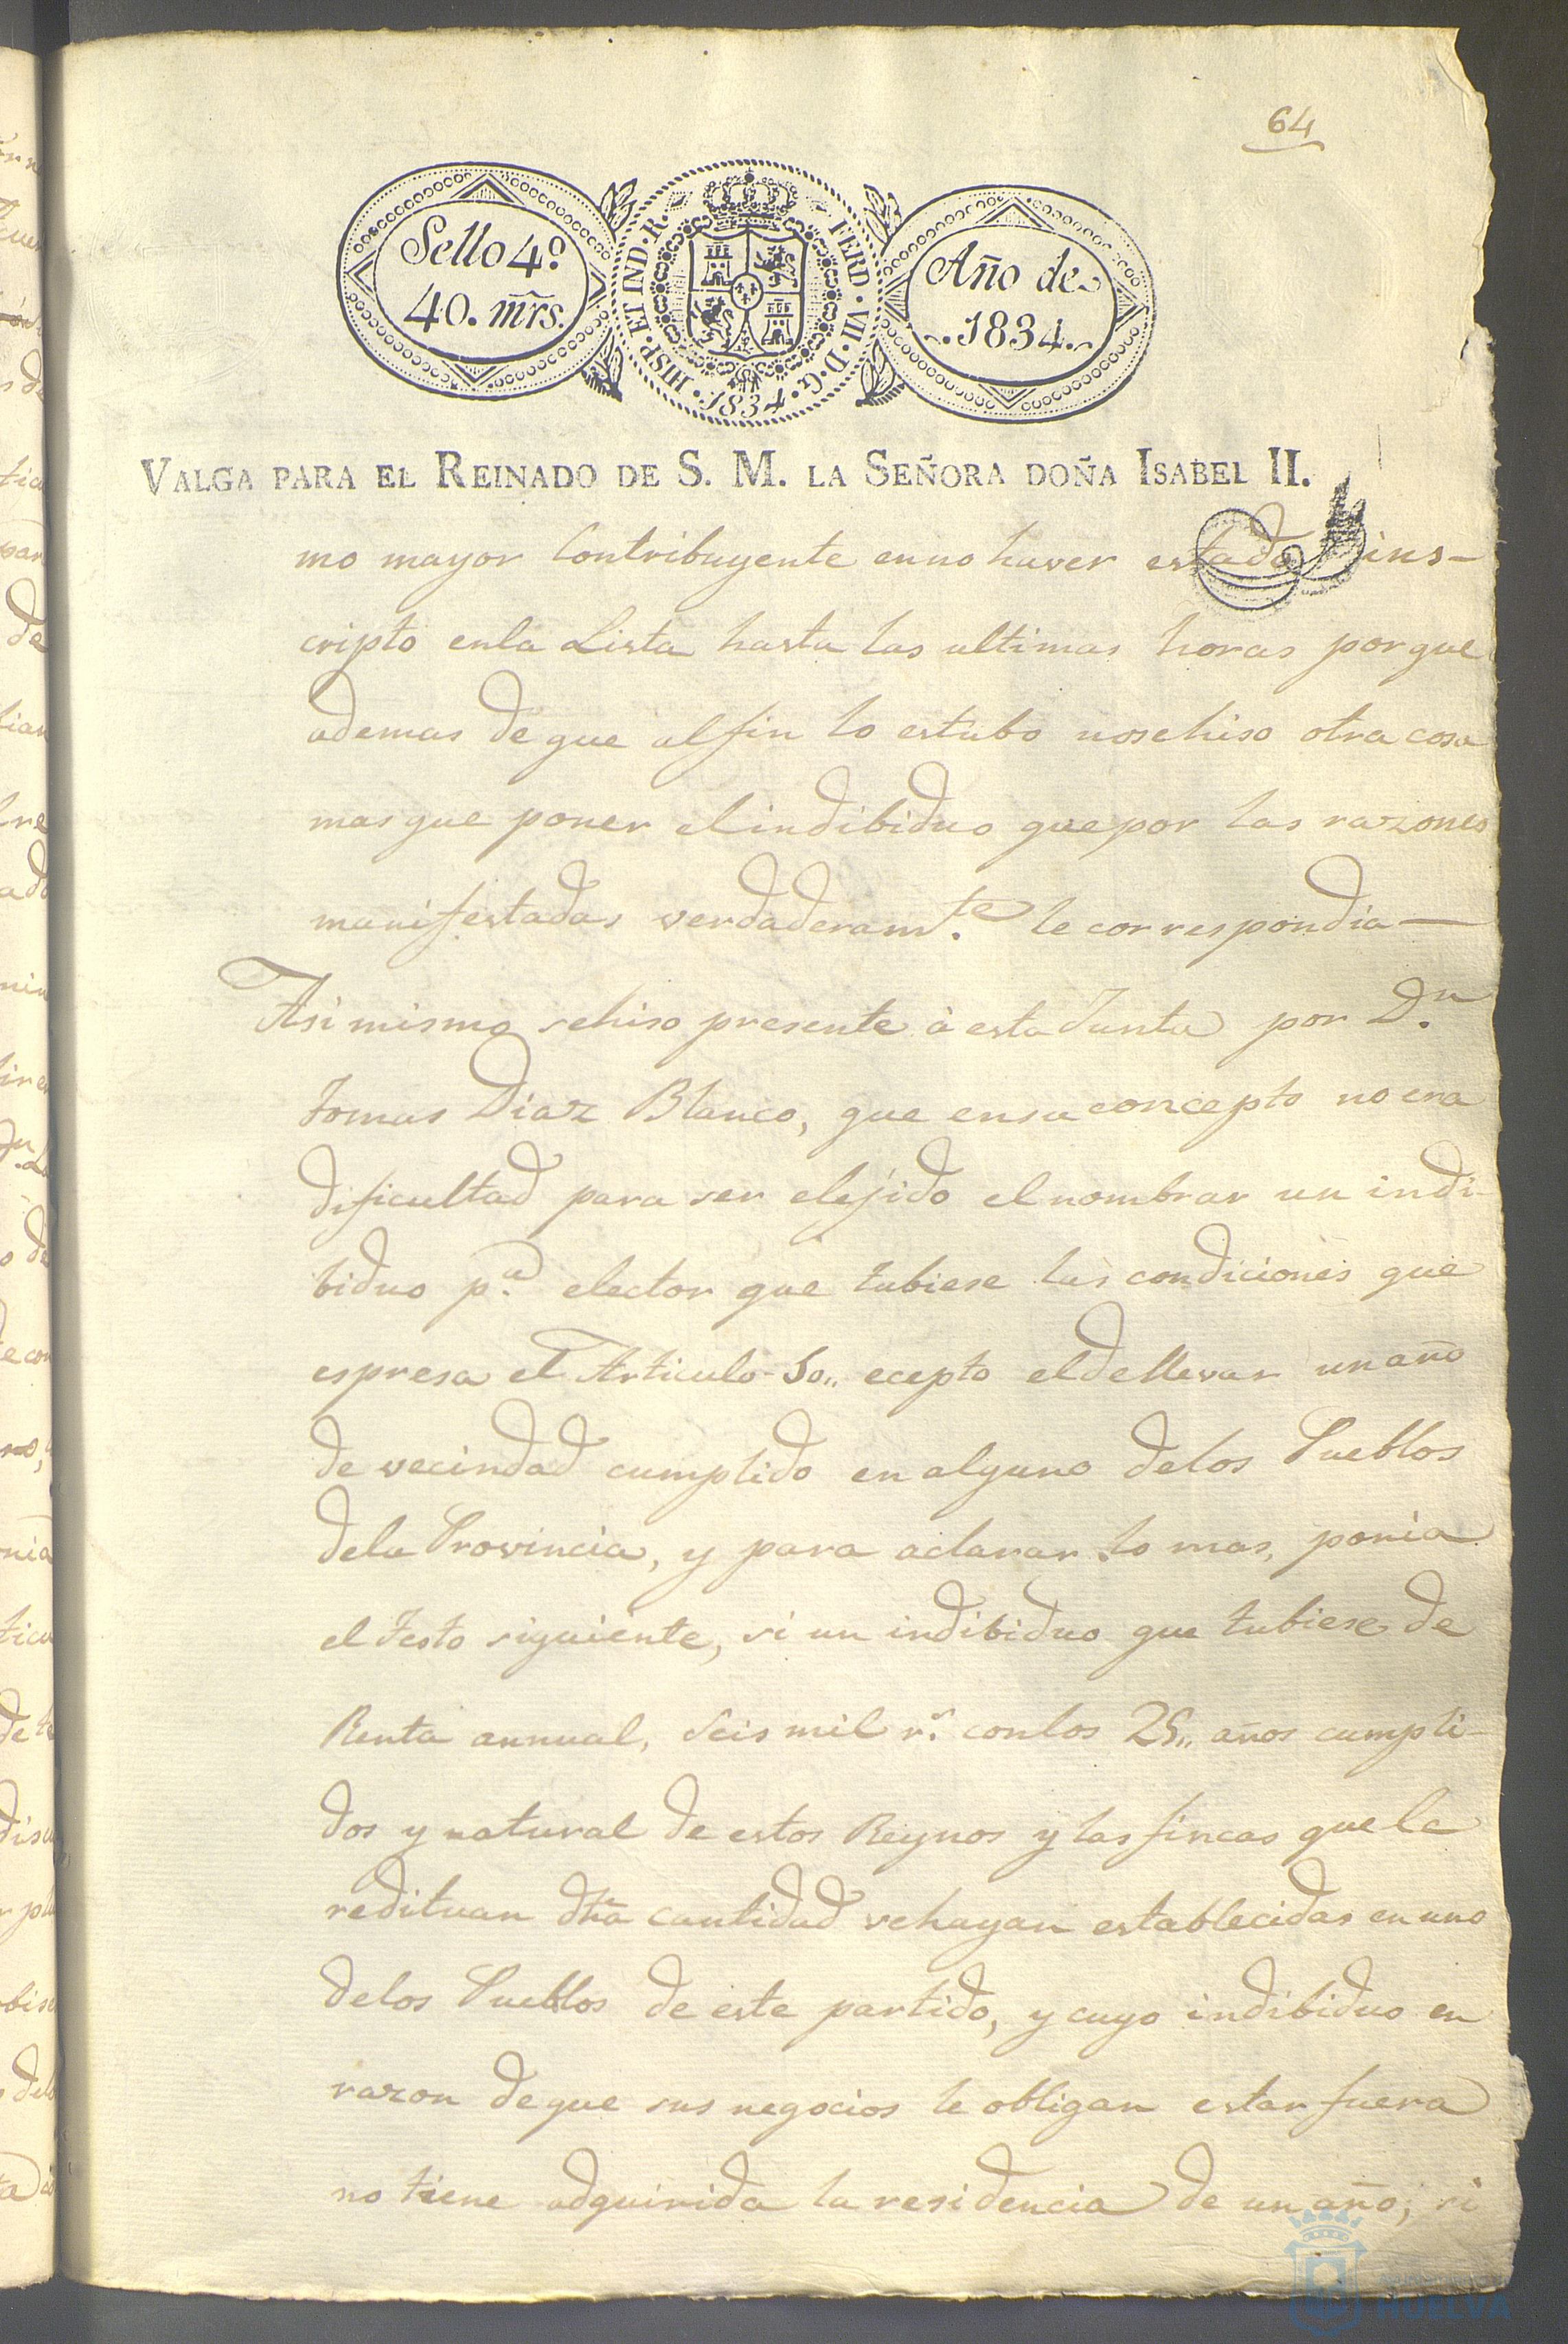 64
Sello 4º
40. mrs.
HISP. ET IND. R.
FERD. VII. D. G.
1834
Año de
1834.
VALGA PARA EL REINADO DE S. M. LA SEÑORA DOÑA ISABEL II.
mo mayor Contribuyente en no haver estado ins-
cripto en la Lista hasta las ultimas horas porque
ademas de que al fin lo estubo no se hiso otra cosa
mas que poner el indibiduo que por las razones
manifestadas verdaderam.te le correspondia—
Asi mismo se hiso presente à esta Junta por D.n
Tomas Diaz Blanco, que en su concepto no era
dificultad para ser elejido el nombrar un indi-
biduo p.a elector que tubiese las condiciones que
espresa el Articulo 50,, ecepto el de llevar un año
de vecindad cumplido en alguno de los Pueblos
de la Provincia, y para aclarar lo mas, ponia
el testo siguiente, si un indibiduo que tubiese de
Renta annual, Seis mil r.s con los 25,, años cumpli-
dos y natural de estos Reynos y las fincas que le
redituan dha cantidad se hayan establecidas en uno
de los Pueblos de este partido, y cuyo indibiduo en
razon de que sus negocios le obligan estar fuera
no tiene adquirida la residencia de un año, si
HUELVA